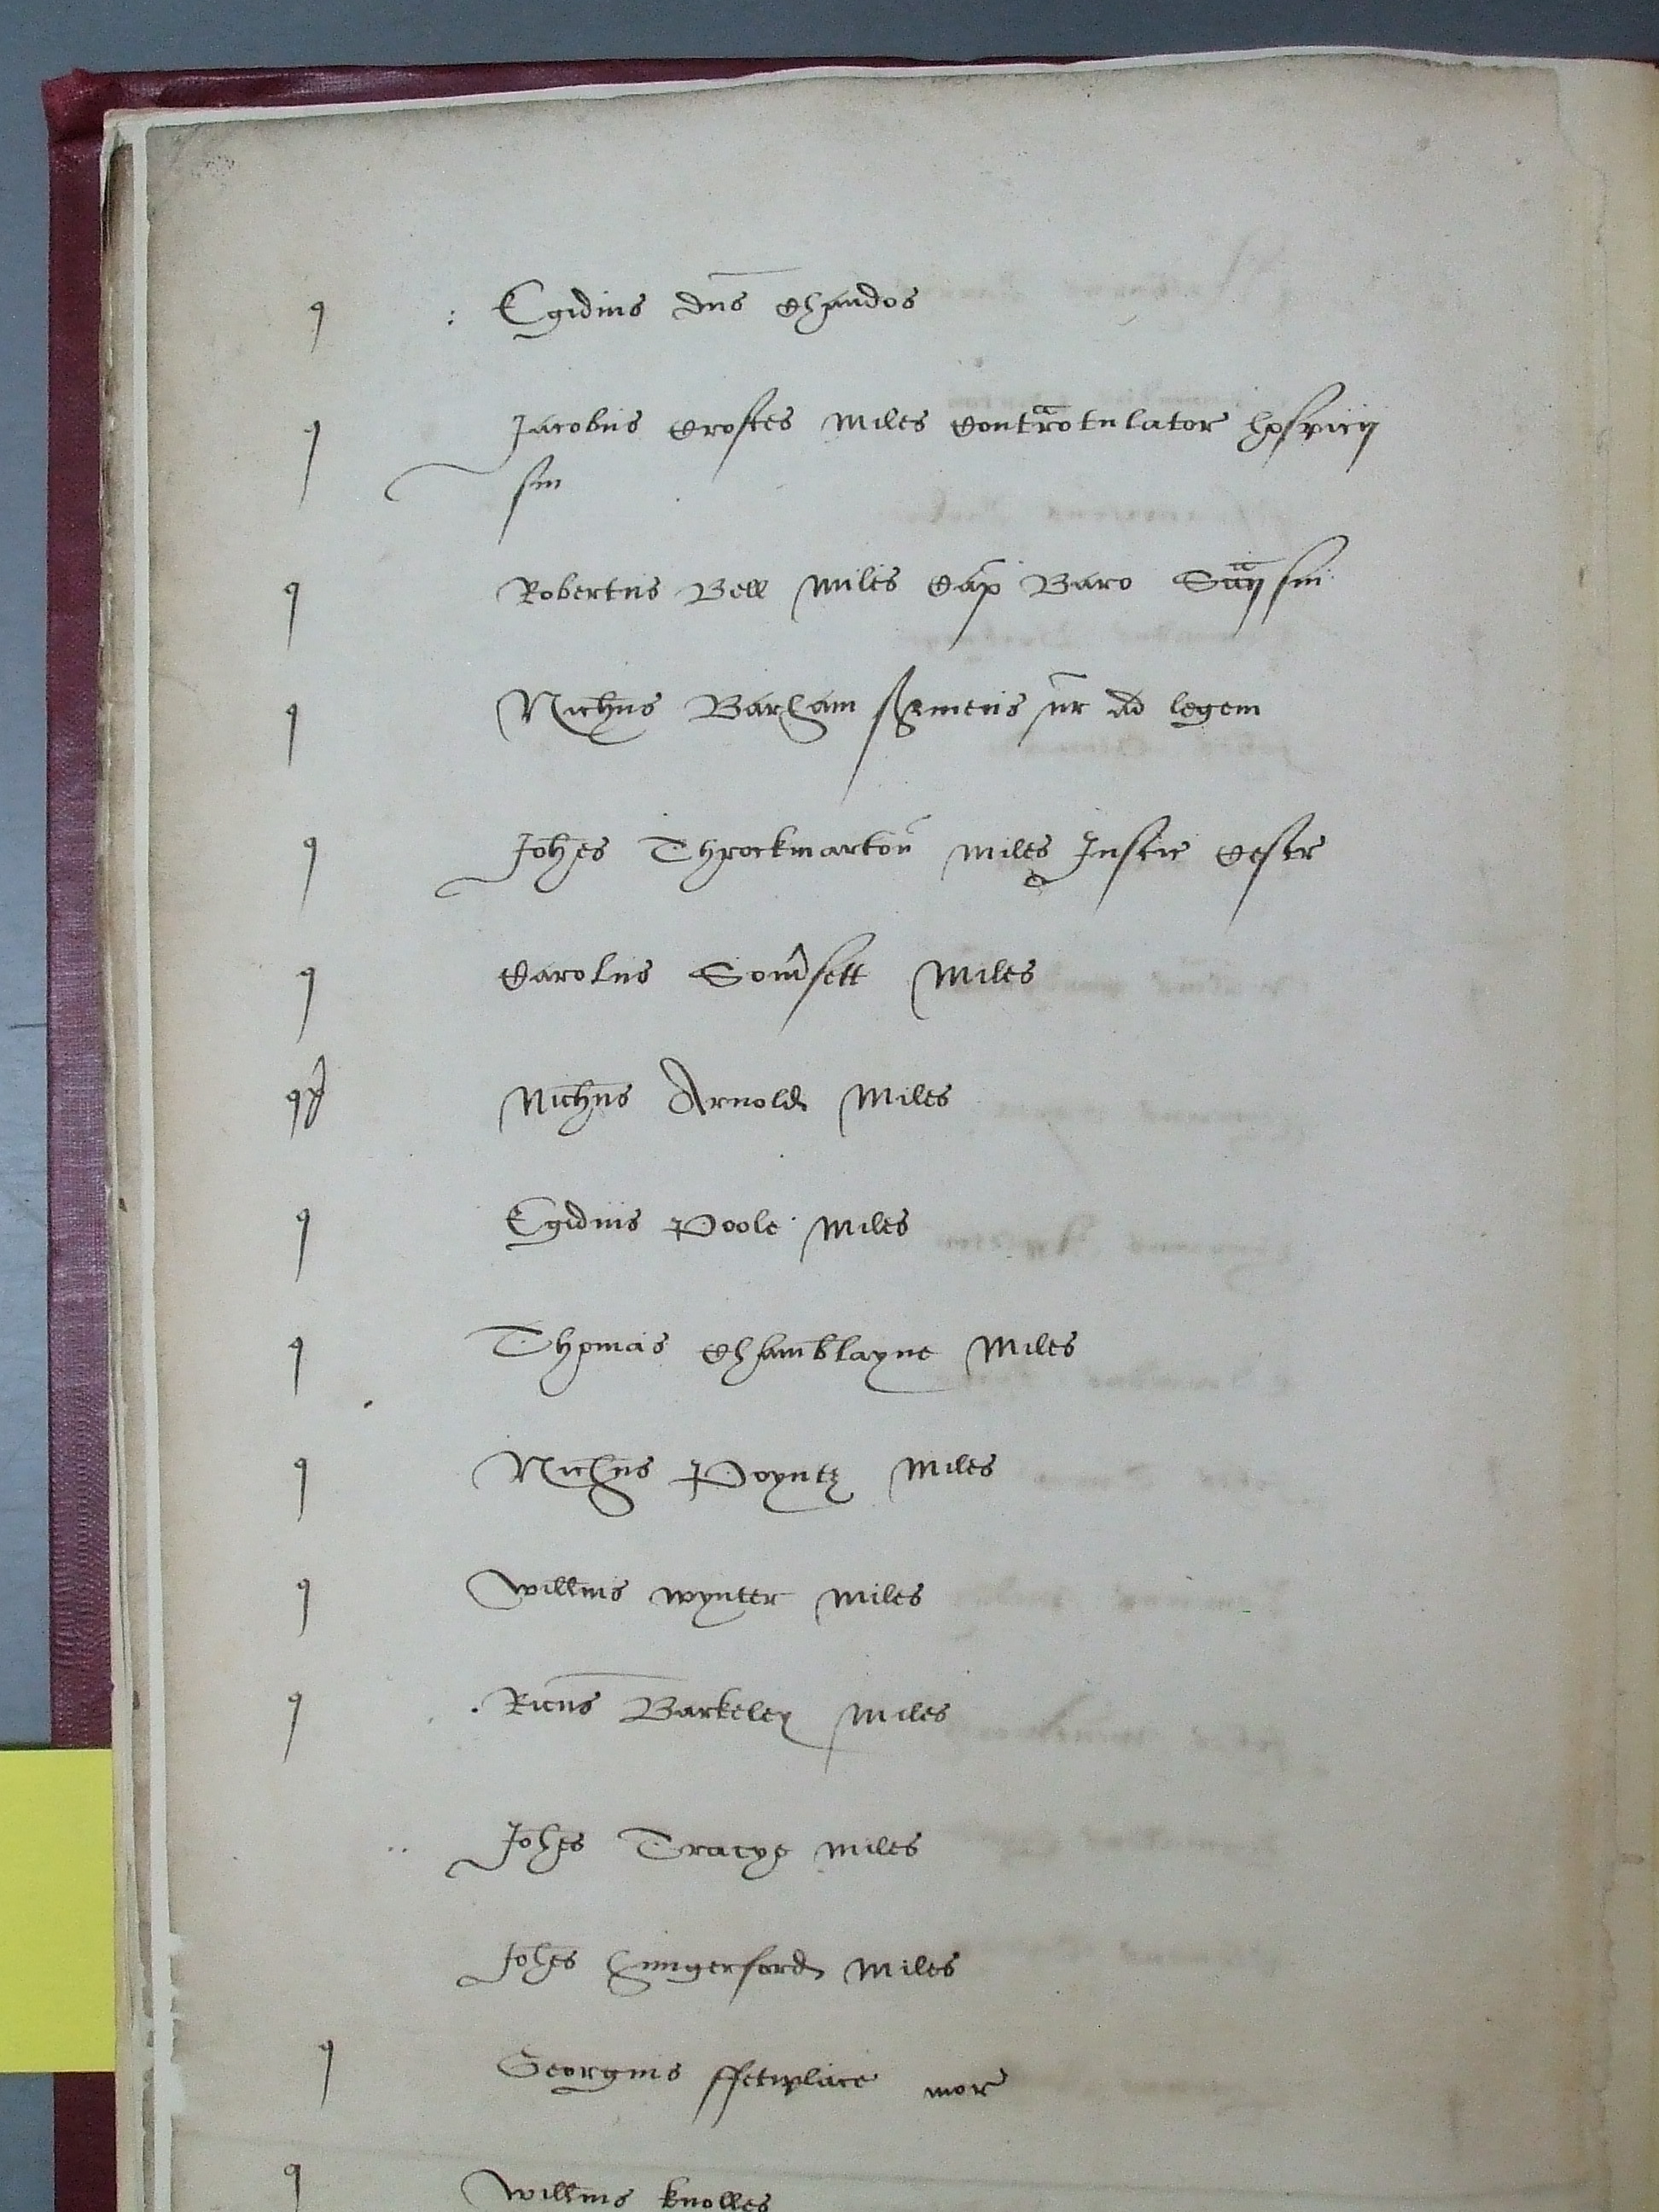 q Egidius dns Chandos
q Jacobus Croftes miles Contrarotulator hospicij
sui
q Robertus Bell miles Cap Baro Sccij sui
q Nichus Barham s̃viens ur ad legem
q Johes Throckmarton miles Justic Cestr
q Carolus Som̃sett miles
q Nichus Arnold miles
q Egidius Poole miles
q Thomas Chamblayne miles
q Nichus Poyntz miles
q Willms wynter miles
q Ricus Barkeley miles
Johes Tracye miles
Johes Hungerford miles
q Georgius ffetiplace mor
q Willms knolles